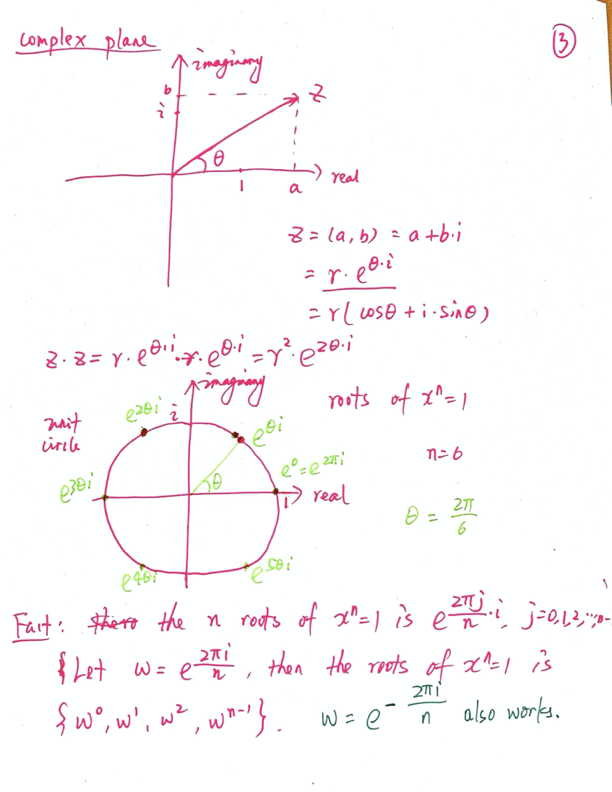 complex plane
③
imaginary
b
i
z
θ
real
1
a
z = (a, b) = a + b·i
= r·e^{θ·i}
= r(cosθ + i·sinθ)
z·z = r·e^{θ·i}·r·e^{θ·i} = r²·e^{2θ·i}
imaginary
roots of xⁿ=1
unit
circle
e^{2θi}
i
e^{θi}
n=6
e⁰=e^{2πi}
e^{3θi}
θ
1
real
θ = 2π/6
e^{4θi}
e^{5θi}
Fact: the n roots of xⁿ=1 is e^{(2πj/n)·i}, j=0,1,2,...,n-1
Let w = e^{2πi/n}, then the roots of xⁿ=1 is
{w⁰, w¹, w², w^{n-1}}. w = e^{-2πi/n} also works.